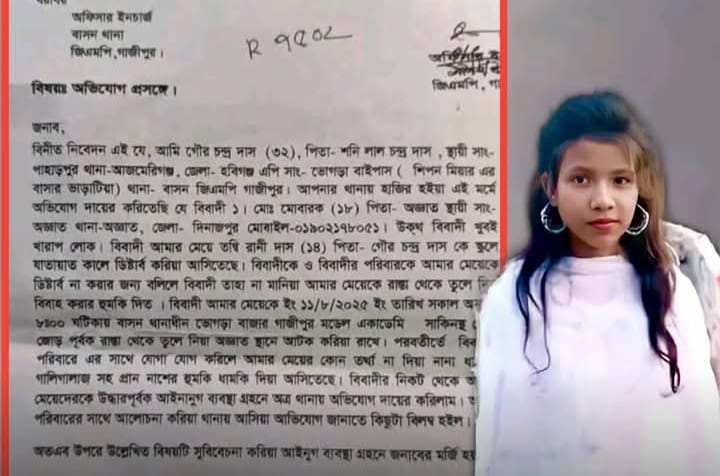 অফিসার ইনচার্জ
বাসন থানা
জিএমপি, গাজীপুর।
জিএমপি,
বিষয়ঃ অভিযোগ প্রসঙ্গে।
জনাব,
বিনীত নিবেদন এই যে, আমি গৌর চন্দ্র দাস (৩২), পিতা- শনি লাল চন্দ্র দাস , স্থায়ী সাং-
পাহাড়পুর থানা-আজমেরিগঞ্জ, জেলা- হবিগঞ্জ এপি সাং- ভোগড়া বাইপাস ( শিপন মিয়ার এর
বাসার ভাড়াটিয়া) থানা- বাসন জিএমপি গাজীপুর। আপনার থানায় হাজির হইয়া এই মর্মে
অভিযোগ দায়ের করিতেছি যে বিবাদী ১। মোঃ মোবারক (১৮) পিতা- অজ্ঞাত স্থায়ী সাং-
অজ্ঞাত থানা-অজ্ঞাত, জেলা- দিনাজপুর মোবাইল-০১৯০২১৭৮০৫১। উক্থ বিবাদী খুবই
খারাপ লোক। বিবাদী আমার মেয়ে তন্বি রানী দাস (১৪) পিতা- গৌর চন্দ্র দাস কে স্কুলে
যাতায়াত কালে ডিষ্টার্ব করিয়া আসিতেছে। বিবাদীকে ও বিবাদীর পরিবারকে আমার মেয়েকে
ডিষ্টার্ব না করার জন্য বলিলে বিবাদী তাহা না মানিয়া আমার মেয়েকে রাস্তা থেকে তুলে
বিবাহ করার হুমকি দিত । বিবাদী আমার মেয়েকে ইং ১১/৮/২০২৫ ইং তারিখ সকাল
৮ঃ০০ ঘটিকায় বাসন থানাধীন ভোগড়া বাজার গাজীপুর মডেল একাডেমি সাকিনস্থ
জোড় পূর্বক রাস্তা থেকে তুলে নিয়া অজ্ঞাত স্থানে আটক করিয়া রাখে। পরবর্তীতে
পরিবারে এর সাথে যোগা যোগ করিলে আমার মেয়ের কোন তর্থ্য না দিয়া নানা
গালিগালাজ সহ প্রান নাশের হুমকি ধামকি দিয়া আসিতেছে। বিবাদীর নিকট থেকে
মেয়েদেরকে উদ্ধারপূর্বক আইনানুগ ব্যবস্থা গ্রহনে অত্র থানায় অভিযোগ দায়ের করিলাম।
পরিবারের সাথে আলোচনা করিয়া থানায় আসিয়া আভিযোগ জানাতে কিছুটা বিলম্ব হইল।
অতএব উপরে উল্লেখিত বিষয়টি সুবিবেচনা করিয়া আইনুগ ব্যবস্থা গ্রহনে জনাবের মর্জি